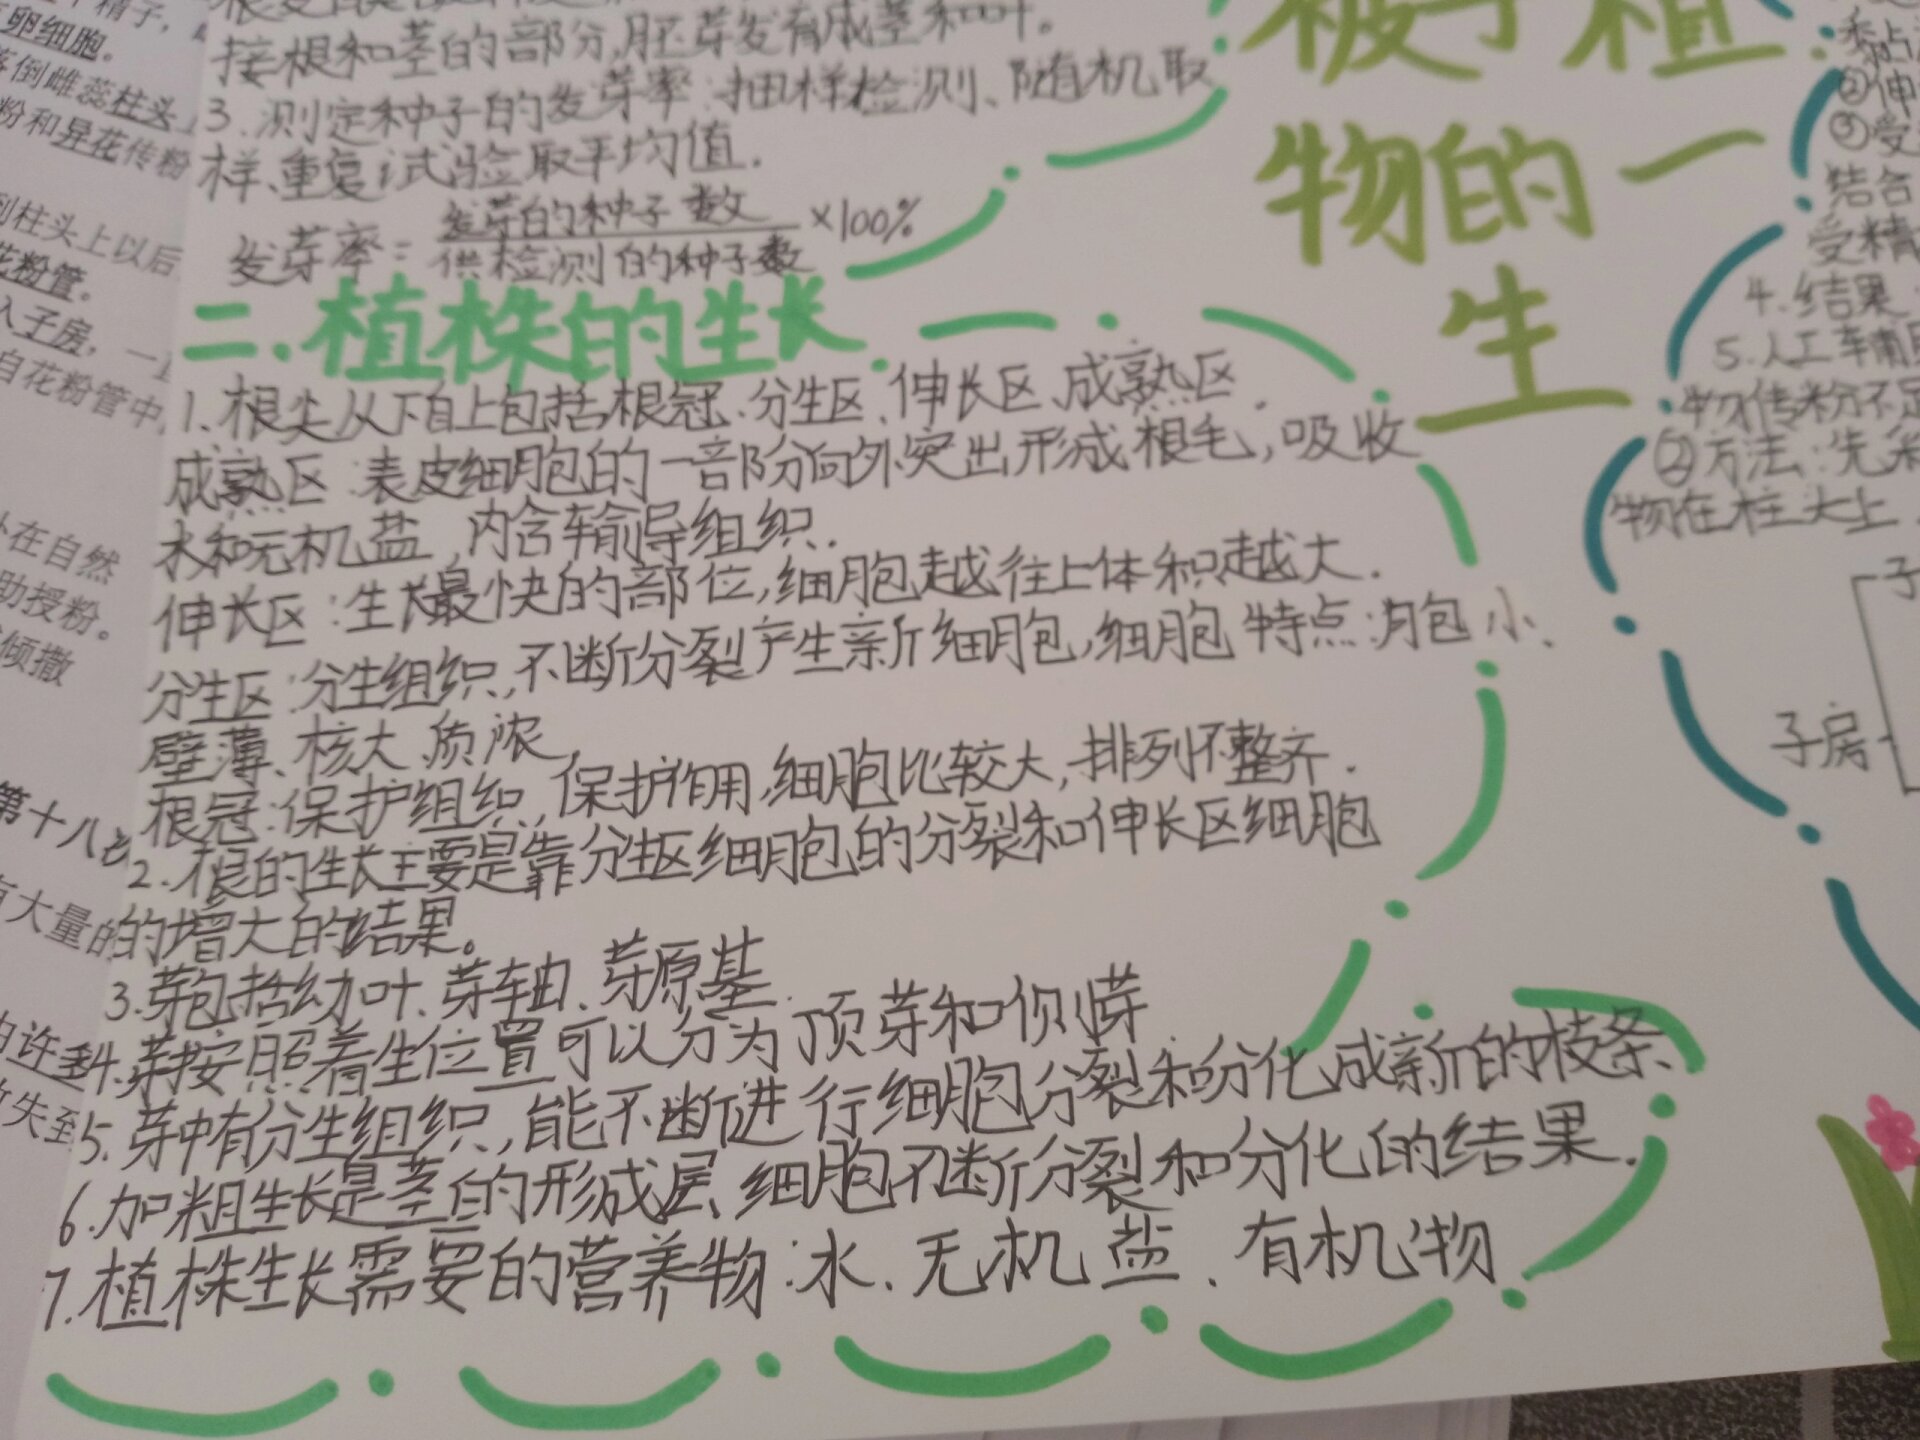 接根和茎的部分,胚芽发育成茎和叶。
3.测定种子的发芽率:抽样检测、随机取
样、重复试验取平均值.
发芽率=发芽的种子数/供检测的种子数×100%
二.植株的生长
1.根尖从下自上包括根冠.分生区、伸长区、成熟区.
成熟区:表皮细胞的一部分向外突出形成根毛,吸收
水和无机盐,内含输导组织.
伸长区:生长最快的部位,细胞越往上体积越大.
分生区:分生组织,不断分裂产生新细胞,细胞特点:胞小、
壁薄、核大、质浓,
根冠:保护组织,保护作用,细胞比较大,排列不整齐.
2.根的生长主要是靠分生区细胞的分裂和伸长区细胞
的增大的结果。
3.芽包括幼叶、芽轴、芽原基.
4.芽按照着生位置可以分为顶芽和侧芽.
5.芽中有分生组织,能不断进行细胞分裂和分化,成新的枝条、
6.加粗生长是茎的形成层、细胞不断分裂和分化的结果.
7.植株生长需要的营养物:水、无机盐、有机物
被子植
物的一
生
②伸
③受
结合
受精
4.结果
5.人工辅
物传粉不足
②方法:先采
物在柱头上
子房
卵细胞。
落倒雌蕊柱头
粉和异花传粉
到柱头上以后
花粉管。
入子房,一
自花粉管中
在自然
助授粉。
倾撒
第十八
有大量的
由许
失至